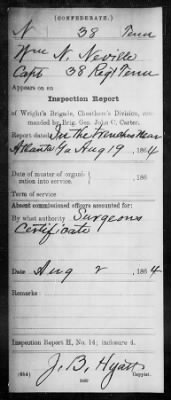 (CONFEDERATE.)
N 38 Tenn
Wm N. Neville
Capt 38 Reg't Tenn
Appears on an
Inspection Report
of Wright's Brigade, Cheatham's Division, com-
manded by Brig. Gen. John C. Carter.
Report dated In the trenches near
Atlanta Ga Aug 19, 1864
Date of muster of organi-
zation into service 186 .
Term of service
Absent commissioned officers accounted for:
By what authority Surgeons
Certificate
Date Aug 2, 1864
Remarks:
Inspection Report H, No. 14; inclosure 4.
J. B. Hyatt
Copyist.